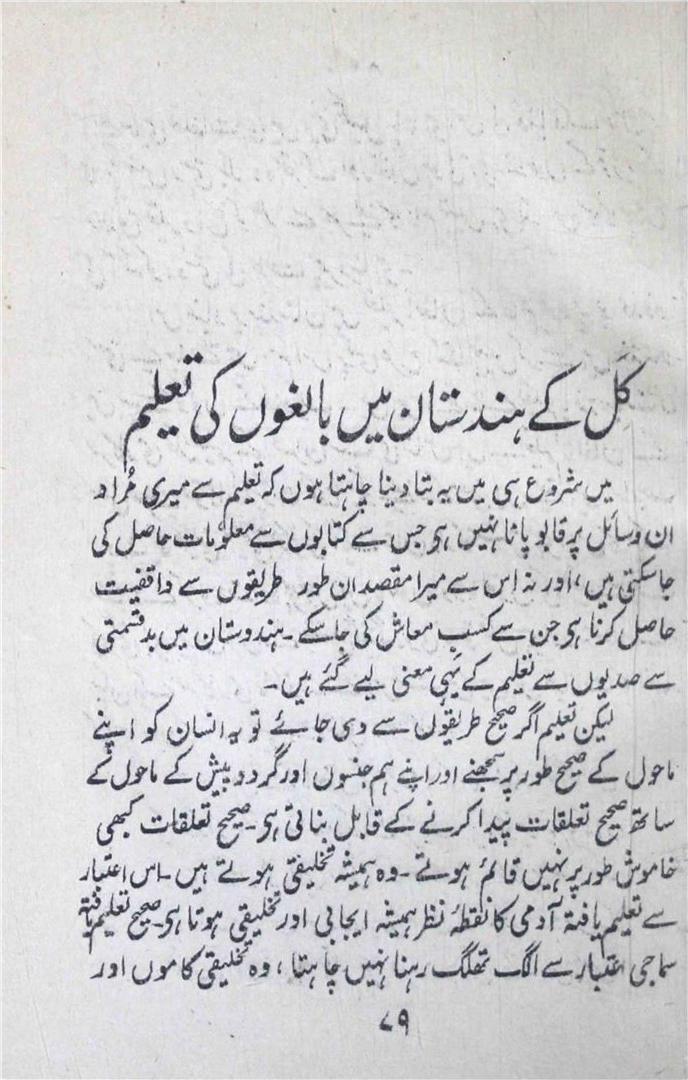 کل کے ہندستان میں بالغوں کی تعلیم
میں شروع ہی میں یہ بتا دینا چاہتا ہوں کہ تعلیم سے میری مُراد
ان وسائل پر قابو پانا نہیں ہی جس سے کتابوں سے معلومات حاصل کی
جا سکتی ہیں، اور نہ اس سے میرا مقصد ان طور طریقوں سے واقفیت
حاصل کرنا ہی جن سے کسبِ معاش کی جا سکے۔ ہندوستان میں بدقسمتی
سے صدیوں سے تعلیم کے یہی معنی لیے گئے ہیں۔
لیکن تعلیم اگر صحیح طریقوں سے دی جائے تو یہ انسان کو اپنے
ماحول کے صحیح طور پر سمجھنے اور اپنے ہم جنسوں اور گرد و پیش کے ماحول کے
ساتھ صحیح تعلقات پیدا کرنے کے قابل بناتی ہی۔ صحیح تعلقات کبھی
خاموش طور پر نہیں قائم ہوتے۔ وہ ہمیشہ تخلیقی ہوتے ہیں۔ اس اعتبار
سے تعلیم یافتہ آدمی کا نقطۂ نظر ہمیشہ ایجابی اور تخلیقی ہوتا ہی۔ صحیح تعلیم یافتہ
سماجی اعتبار سے الگ تھلگ رہنا نہیں چاہتا، وہ تخلیقی کاموں اور
۷۹